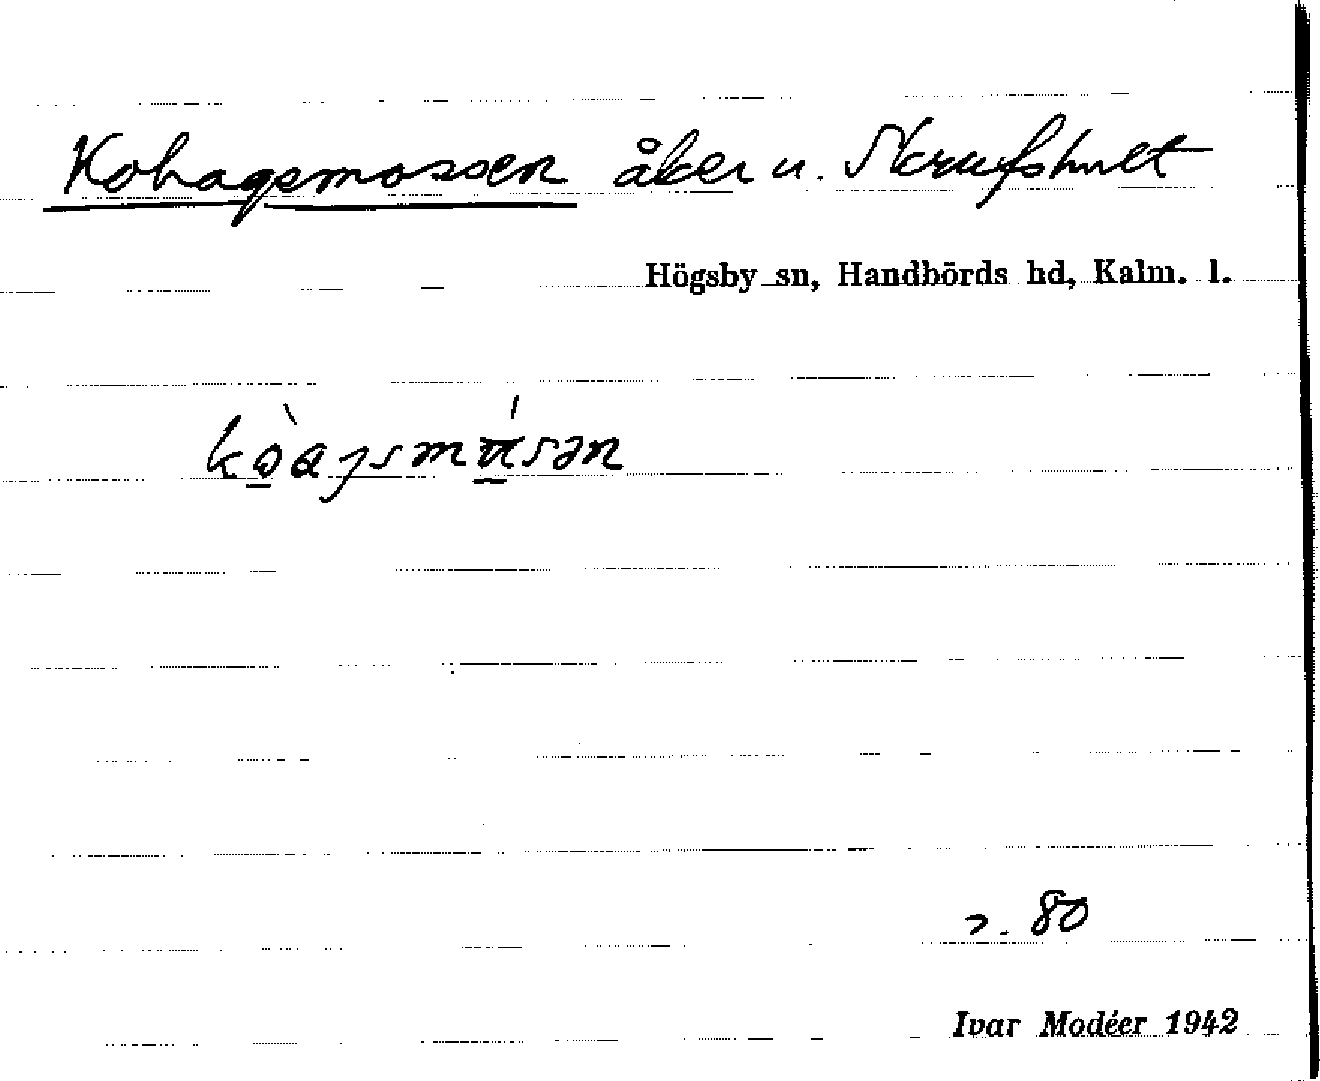 Kohagsmossen åker u. Skrufshult
Högsby sn, Handbörds hd, Kalm. l.
80
Ivar Modéer 1942